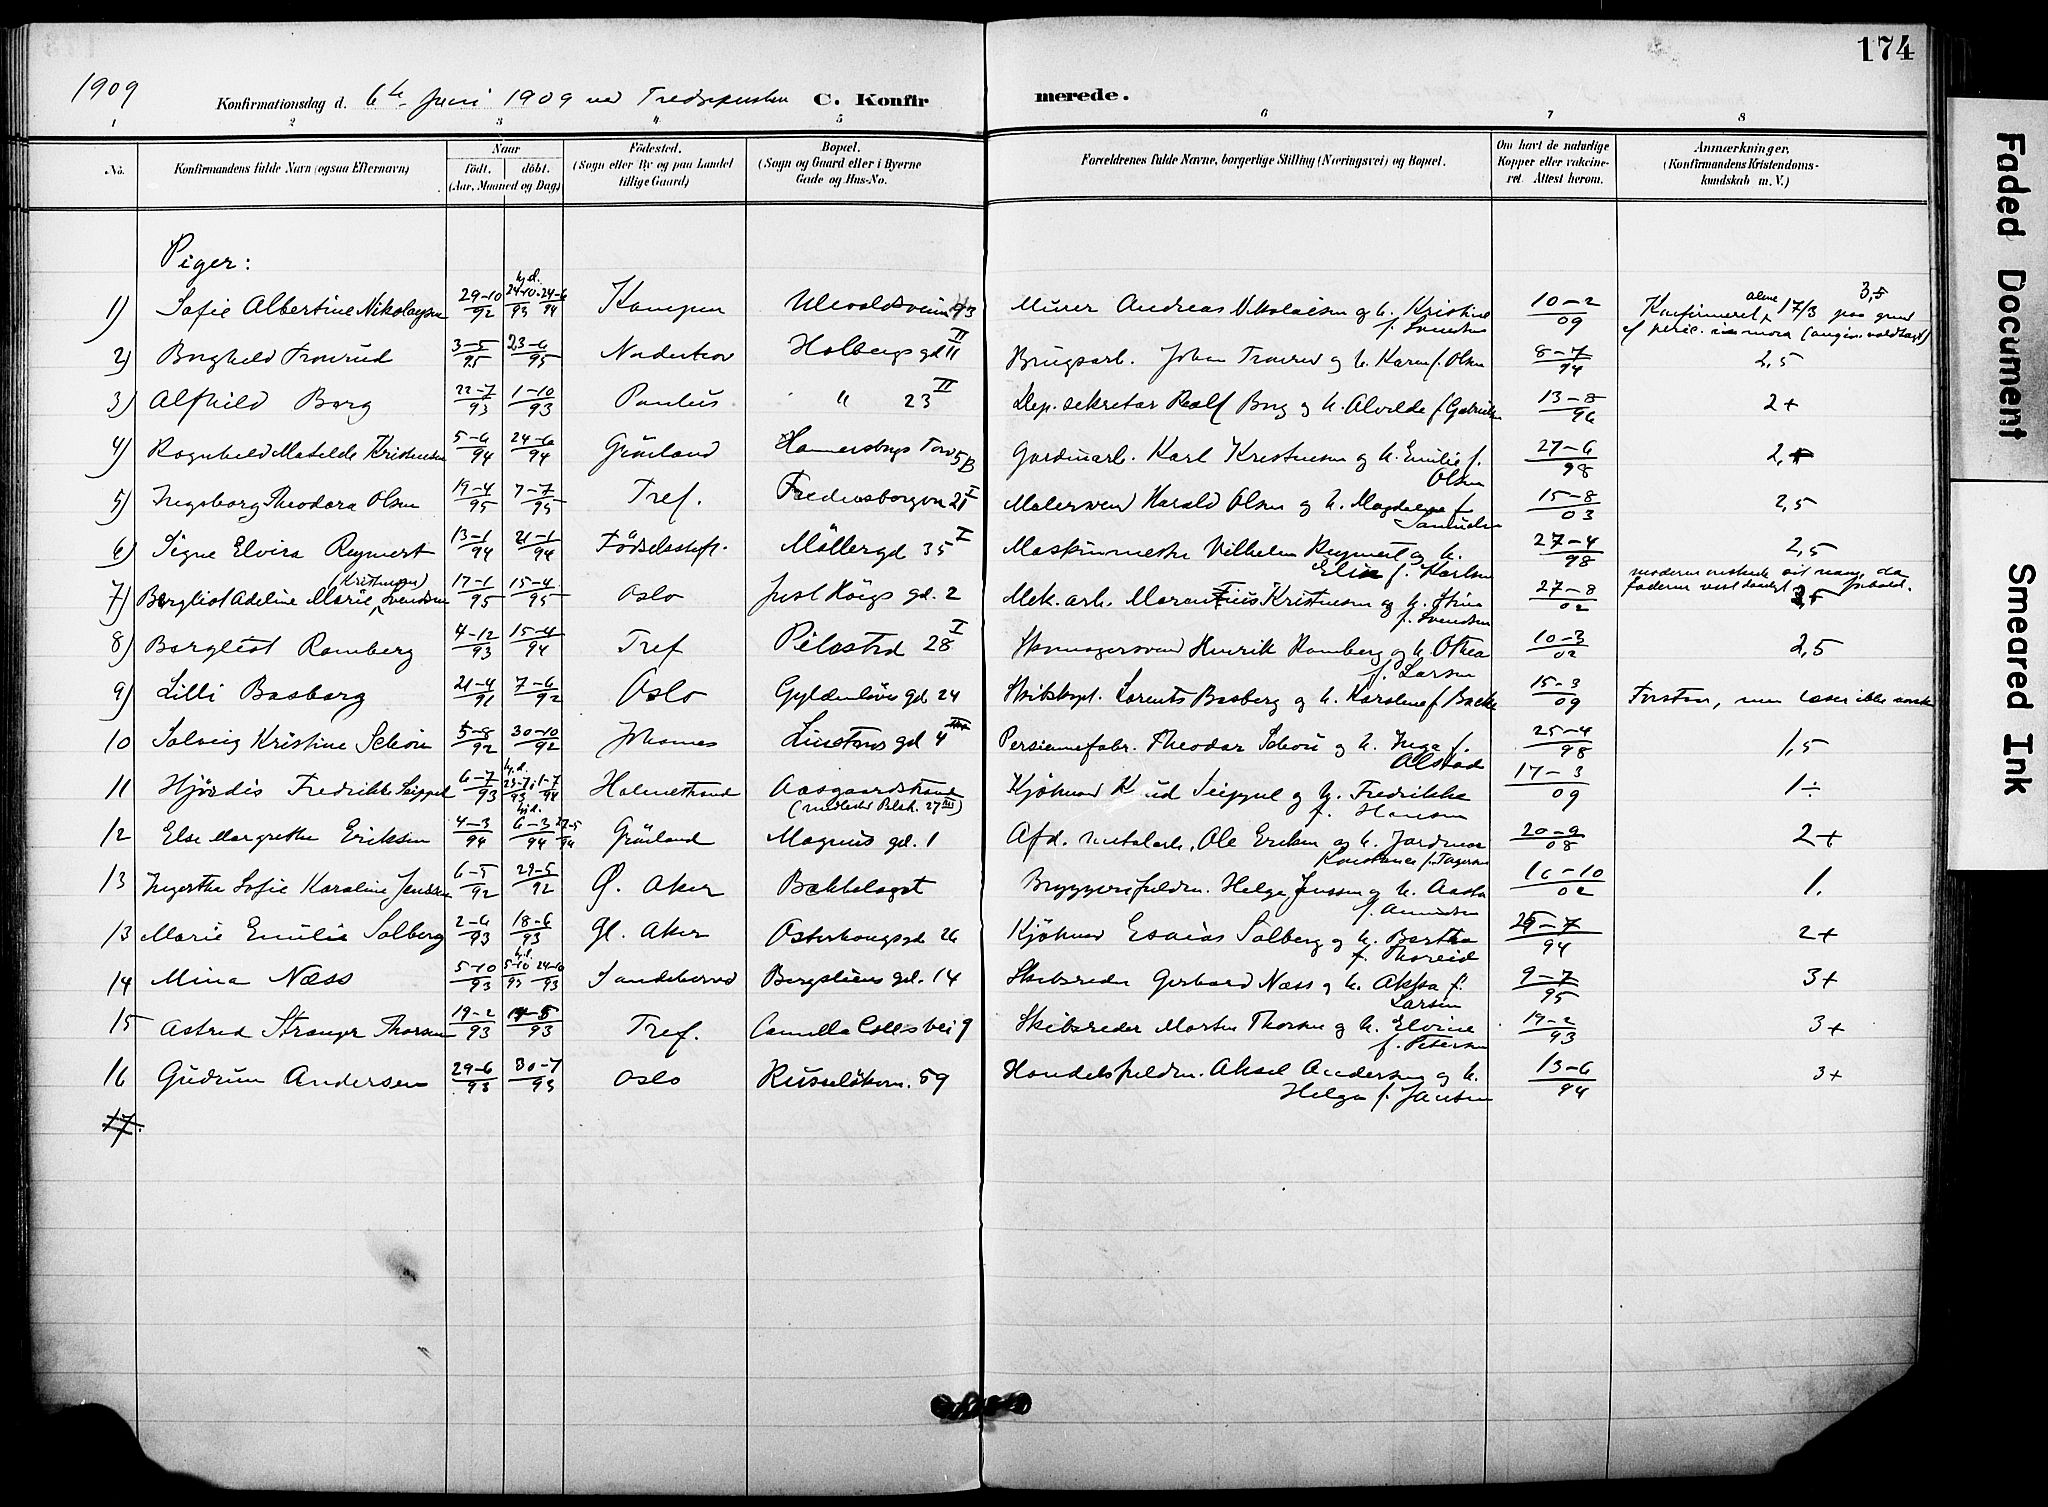 174
1909
Konfirmationsdag d. 6te Juni 1909 ved C. Konfirmerede.
1 2 3 4 5 6 7 8
No. Konfirmandens fulde Navn (ogsaa Efternavn) Naar født. døbt. (Aar, Maaned og Dag) Fødested. (Sogn eller By og paa Landet tillige Gaard) Bopæl. (Sogn og Gaard eller i Byerne Gade og Hus-No. Forældrenes fulde Navne, borgerlige Stilling (Næringsvei) og Bopæl. Om havt de naturlige Kopper eller vakcineret. Attest herom. Anmærkninger, (Konfirmandens Kristendomskundskab m. V.)
Piger:
1) Sofie Albertine Nikolaysen 29-10/92 hj.d. 24-10/93 24-6/94 Kampen Ullevoldsveien 93 Murer Andreas Nikolaisen og h. Kristine f. Svendsen 10-2/09 Konfirmeret alene 17/3 paa grund af peric. in mora 3,5
2) Borghild Tronrud 3-5/95 23-6/95 Nordstrøm Holbergs gd 11 II Brugsarb. Johan Tronrud og h. Karen f. Olsen 8-7/94 2,5
3) Alfhild Borg 22-7/93 1-10/93 Paulus " 23 II Dep. sekretær Ralf Borg og h. Alvilde f. Gabrielsen 13-8/96 2+
4) Ragnhild Matilde Kristensen 5-6/94 24-6/94 Grønland Hammersborgs Torv 5B Gardinarb. Karl Kristensen og h. Emilie f. Olsen 27-6/98 2,+
5) Ingeborg Theodora Olsen 19-4/95 7-7/95 Tref. Fredensborgvn 21 I Malersvend Harald Olsen og h. Magdalena f. Samuelsen 15-8/03 2,5
6) Signe Elvira Reymert 13-1/94 21-1/94 Fødselsstift. Møllergd 35 I Maskinmester Vilhelm Reymert og h. Elin f. Karlsen 27-4/98 2,5
7) Bergliot Adeline Marie (Kristensen) Svendsen 17-1/95 15-4/95 Oslo Just Høegs gd. 2 Mek. arb. Marentius Kristensen og h. Stina f. Svendsen 27-8/02 moderen ønskede sit navn, da faderen 2,5
8) Bergliot Ramberg 4-12/93 15-4/94 Tref Pilestræd 28 I Skomagersvend Henrik Ramberg og h. Othea f. Larsen 10-3/02 2,5
9) Lilli Basberg 21-4/91 7-6/92 Oslo Gyldenløves gd 24 Skibskapt. Lorents Basberg og h. Karoline f. Bache 15-3/09 Forstaar, men læser ikke norske
10 Solveig Kristine Schou 5-8/92 30-10/92 Johannes Linstows gd 4 Persiennefabr. Theodor Schou og h. Inga f. Alstad 25-4/98 1,5
11 Hjørdis Fredrikke Seippel 6-7/93 hj.d. 23-7/93 1-7/94 Holmestrand Aasgaardstrand (midlertid Pilestr. 27 III) Kjøbmand Knud Seippel og h. Fredrikke f. Hansen 17-3/09 1÷
12 Else Margrethe Eriksen 4-3/94 hj.d. 6-3/94 27-5/94 Grønland Magnus gd. 1 Afd. metalarb. Ole Eriksen og h. Jordmor Konstance f. 20-9/08 2+
13 Ingertha Sofie Karoline Jenssen 6-5/92 29-5/92 Ø. Aker Bækkelaget Bryggerifuldm. Helge Jenssen og h. Aasta f. Amundsen 16-10/02 1.
13 Marie Emilie Solberg 2-6/93 18-6/93 Gl. Aker Osterhausgd 26 Kjøbmand Esaias Solberg og h. Bertha f. Thoreid 25-7/94 2+
14 Mina Næss 5-10/93 hj.d. 5-10/93 24-10/93 Sandeherred Bergsliens gd. 14 Skibsreder Gerhard Næss og h. Aksa f. Larsen 9-7/95 3+
15 Astrid Stranger Thorsen 19-2/93 14-5/93 Tref. Camilla Colletsvei 9 Skibsreder Morten Thorsen og h. Elvine f. Petersen 19-2/93 3+
16 Gudrun Andersen 29-6/93 30-7/93 Oslo Russeløkvn. 59 Handelsfuldm. Aksel Andersen og h. Helga f. Jensen 13-6/94 3+
17.
Faded Document
Smeared Ink